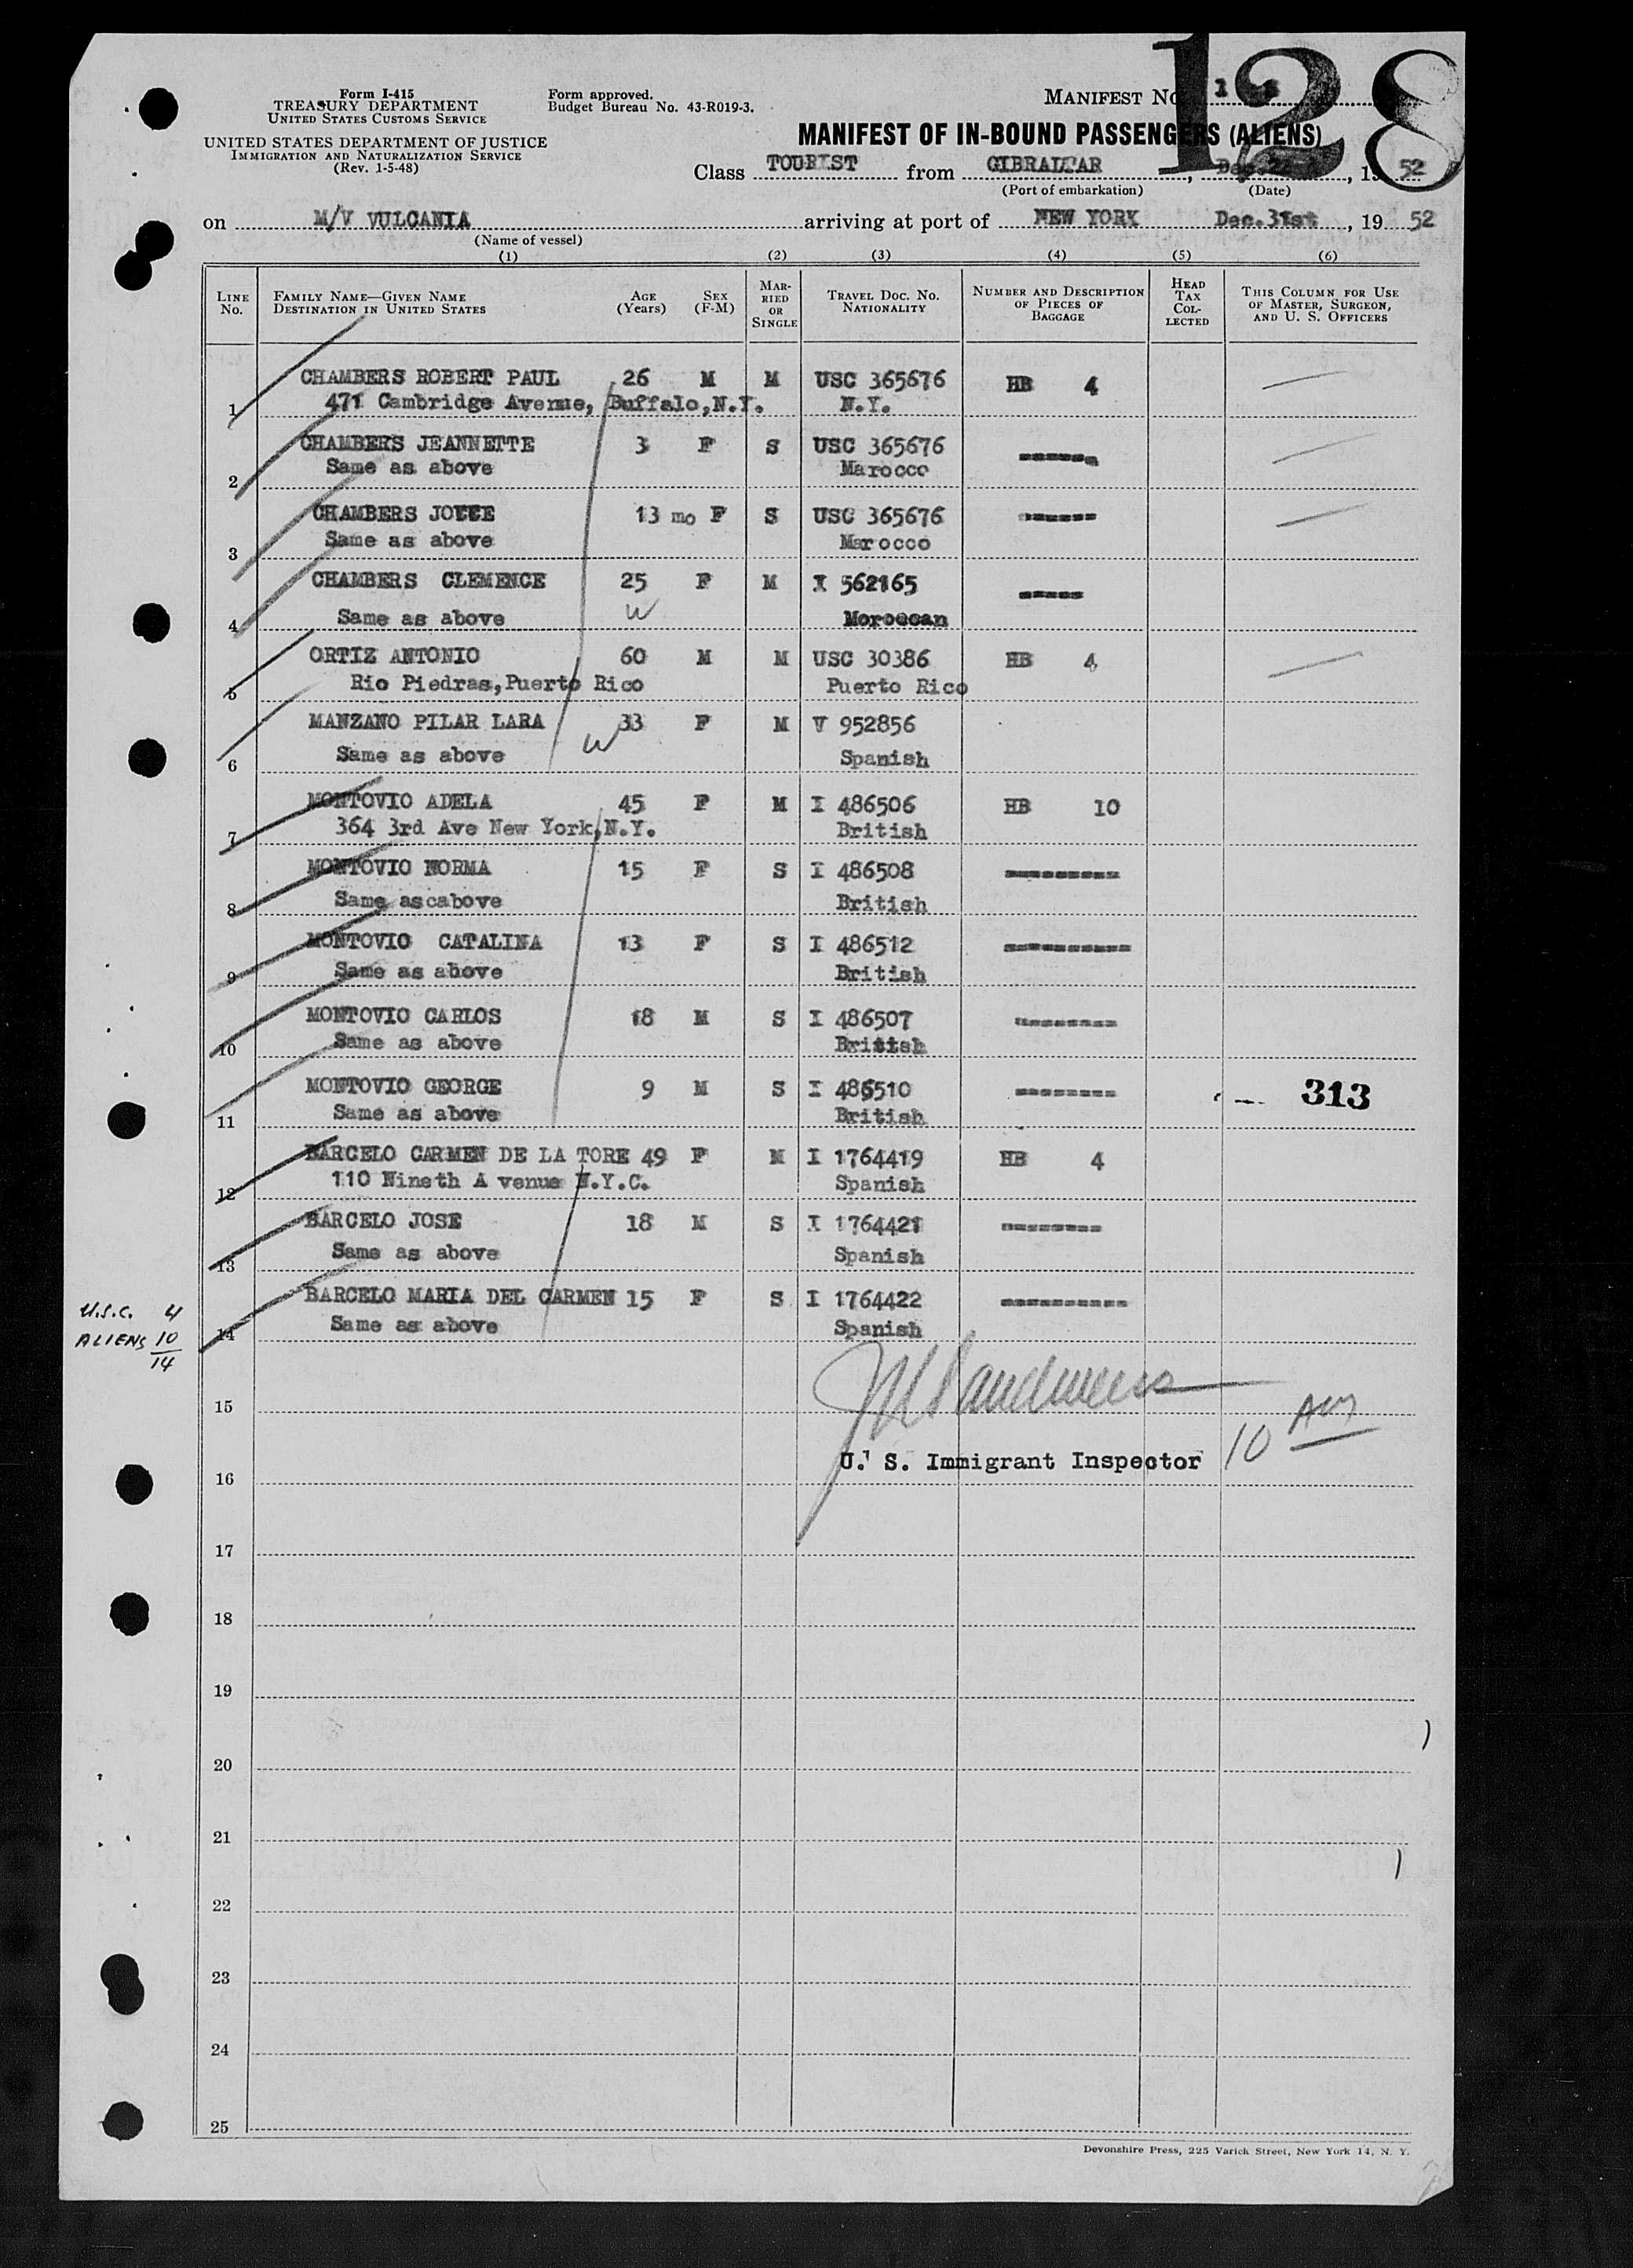 128
Form I-415
TREASURY DEPARTMENT
UNITED STATES CUSTOMS SERVICE
UNITED STATES DEPARTMENT OF JUSTICE
IMMIGRATION AND NATURALIZATION SERVICE
(Rev. 1-5-48)
Form approved.
Budget Bureau No. 43-R019-3.
MANIFEST No.
MANIFEST OF IN-BOUND PASSENGERS (ALIENS)
Class TOURIST from GIBRALTAR, Dec., 19 52
(Port of embarkation) (Date)
on M/V VULCANIA arriving at port of NEW YORK Dec.31st, 19 52
(Name of vessel)
(1) (2) (3) (4) (5) (6)
LINE No. FAMILY NAME—GIVEN NAME DESTINATION IN UNITED STATES AGE (Years) SEX (F-M) MARRIED OR SINGLE TRAVEL DOC. NO. NATIONALITY NUMBER AND DESCRIPTION OF PIECES OF BAGGAGE HEAD TAX COLLECTED THIS COLUMN FOR USE OF MASTER, SURGEON, AND U. S. OFFICERS
CHAMBERS ROBERT PAUL 26 M M USC 365676 HB 4
1 471 Cambridge Avenue, Buffalo,N.Y. N.Y.
CHAMBERS JEANNETTE 3 F S USC 365676 -------
2 Same as above Marocco
CHAMBERS JOYCE 13 mo F S USC 365676 -------
3 Same as above Marocco
CHAMBERS CLEMENCE 25 F M I 562165 -----
4 Same as above W Moroccan
ORTIZ ANTONIO 60 M M USC 30386 HB 4
5 Rio Piedras,Puerto Rico Puerto Rico
MANZANO PILAR LARA 33 F M V 952856
6 Same as above W Spanish
MONTOVIO ADELA 45 F M I 486506 HB 10
7 364 3rd Ave New York,N.Y. British
MONTOVIO NORMA 15 F S I 486508 ---------
8 Same ascabove British
MONTOVIO CATALINA 13 F S I 486512 ----------
9 Same as above British
MONTOVIO CARLOS 18 M S I 486507 --------
10 Same as above British
MONTOVIO GEORGE 9 M S I 486510 -------- 313
11 Same as above British
BARCELO CARMEN DE LA TORE 49 F M I 1764419 HB 4
12 110 Nineth A venue N.Y.C. Spanish
BARCELO JOSE 18 M S I 1764421 --------
13 Same as above Spanish
BARCELO MARIA DEL CARMEN 15 F S I 1764422 ----------
14 Same as above Spanish
U.S.C. 4
ALIENS 10
14
15
U. S. Immigrant Inspector 10
16
17
18
19
20
21
22
23
24
25
Devonshire Press, 225 Varick Street, New York 14, N. Y.